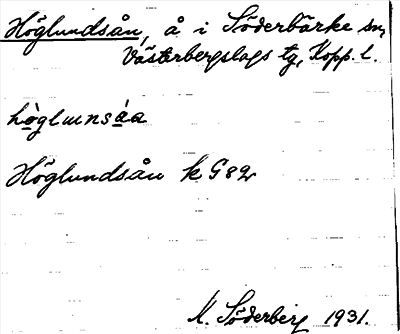 Höglundsån, å i Söderbärke sn,
Västerbergslags tg, Kopp. l.
hö̀glunsá̱a
Höglundsån k G82
M. Söderberg 1931.